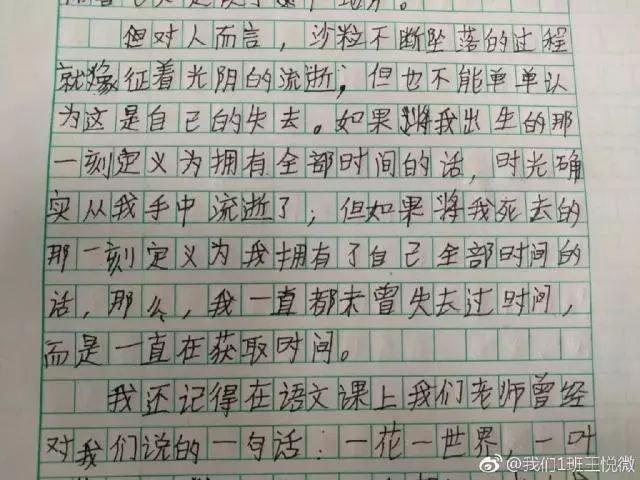 但对人而言，沙粒不断坠落的过程
就像征着光阴的流逝；但也不能单单认
为这是自己的失去。如果将我出生的那
一刻定义为拥有全部时间的话，时光确
实从我手中流逝了；但如果将我死去的
那一刻定义为我拥有了自己全部时间的
话，那么，我一直都未曾失去过时间，
而是一直在获取时间。
我还记得在语文课上我们老师曾经
对我们说的一句话：一花一世界，一叶
@我们1班王悦微